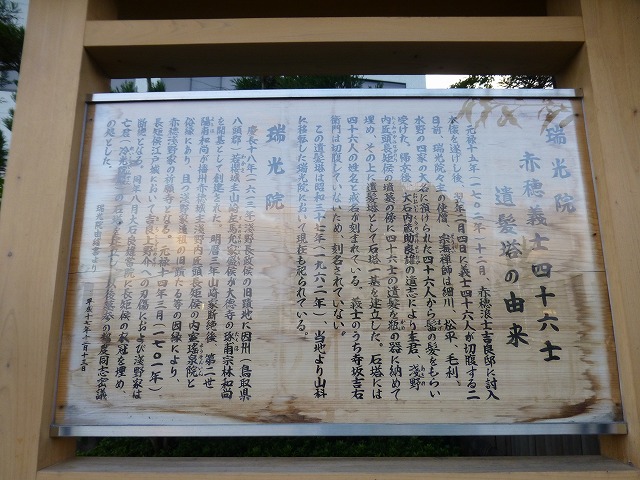 瑞光院
赤穂義士四十六士
遺髪塔の由来
元禄十五年(一七〇二年)十二月、赤穂浪士吉良邸に討入
本懐を遂げし後、翌年二月四日に義士四十六人が切腹する二
日前、瑞光院々主の使僧、宗海禅師は細川、松平、毛利、
水野の四家の大名に預けられた四十六人から髻の髪をもらい
受けた。帰京後に大石内蔵助良雄の遺志により主君、浅野
内匠頭長矩侯の墳墓の傍に四十六士の遺髪を瓶の器に納めて
埋め、その上に遺髪塔として石塔一基を建立した。石塔には
四十六人の姓名と戒名が刻まれている。義士のうち寺坂吉右
衛門は切腹していないため、刻名されていない。
この遺髪塔は昭和三十七年(一九六二年)、当地より山科
に移転した瑞光院において現在も祀られている。
瑞光院
慶長十八年(一六一三年)浅野長政侯の旧領地に因州(鳥取県
八頭郡)若桜城主山崎左馬允家盛侯が大徳寺の琢甫宗林和尚
を開基として創建された。明暦三年山崎家断絶後、第二世
陽甫和尚が播州赤穂城主浅野内匠頭長矩侯の内室瑤泉院と
俗縁にあり、且つ浅野家遠祖の旧領たる等の因縁により、
赤穂浅野家の祈願寺となる。元禄十四年三月(一七〇一年)、
長矩侯江戸城において吉良上野介への刃傷におよび浅野家は
断絶となる。同年八月大石良雄等当院に長矩侯の衣冠を埋め、
亡君
瑞光院由緒書より
平成十七年十二月十二日